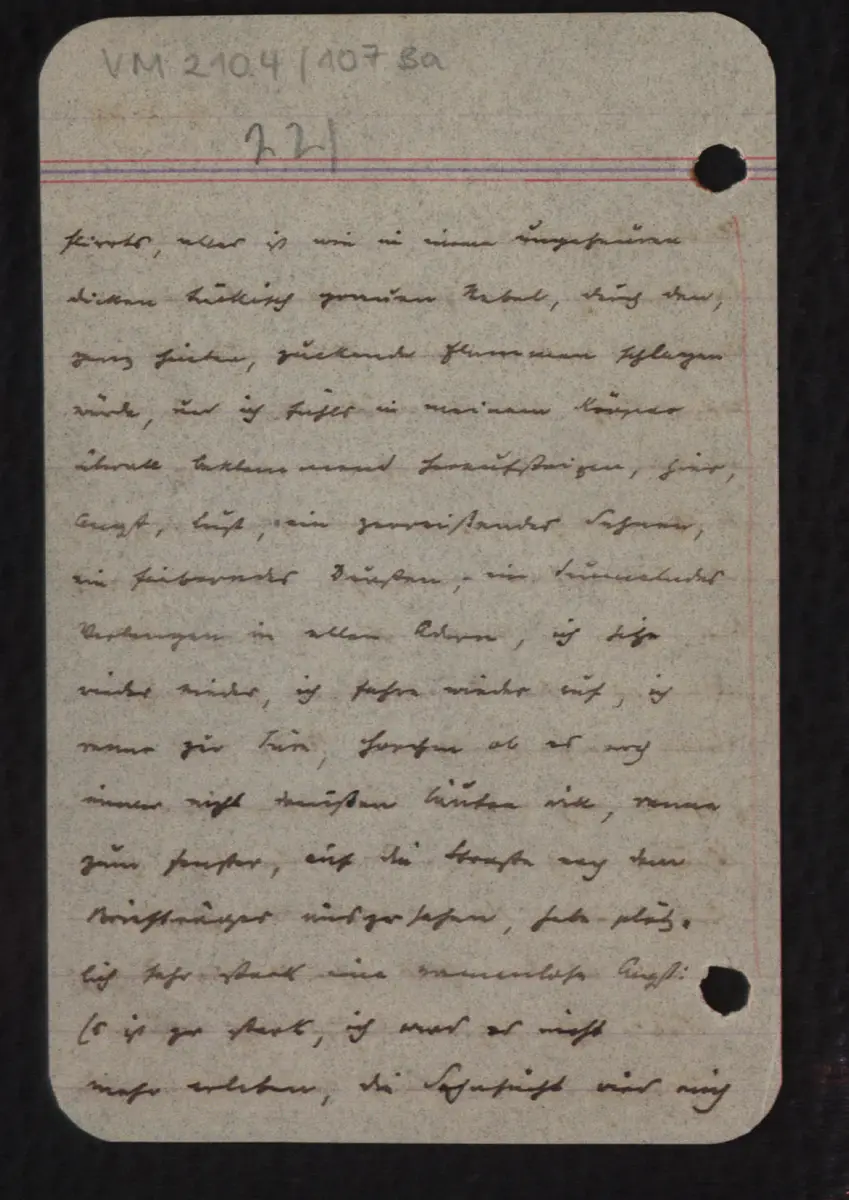 VM 2104/107 Ba
221
flirrts, alles ist wie in einem ungeheuren
dicken tückisch grauen Nebel, durch den,
ganz hinten, zuckende Flammen schlagen
würde, und ich fühls in meinem Körper
überall beklemmend heraufsteigen, hier,
Angst, Lust, ein zerreißendes Sehnen,
ein fieberndes Dürsten, ein taumelndes
Verlangen in allen Adern, ich sitze
wieder nieder, ich fahre wieder auf, ich
renne zur Türe, horchen ob es noch
immer nicht draußen läuten will, renne
zum Fenster, auf die Straße nach dem
Briefträger auszusehen, habe plötz-
lich sehr stark eine namenlose Angst:
Es ist zu stark, ich werd es nicht
mehr erleben, die Sehnsucht wird mich